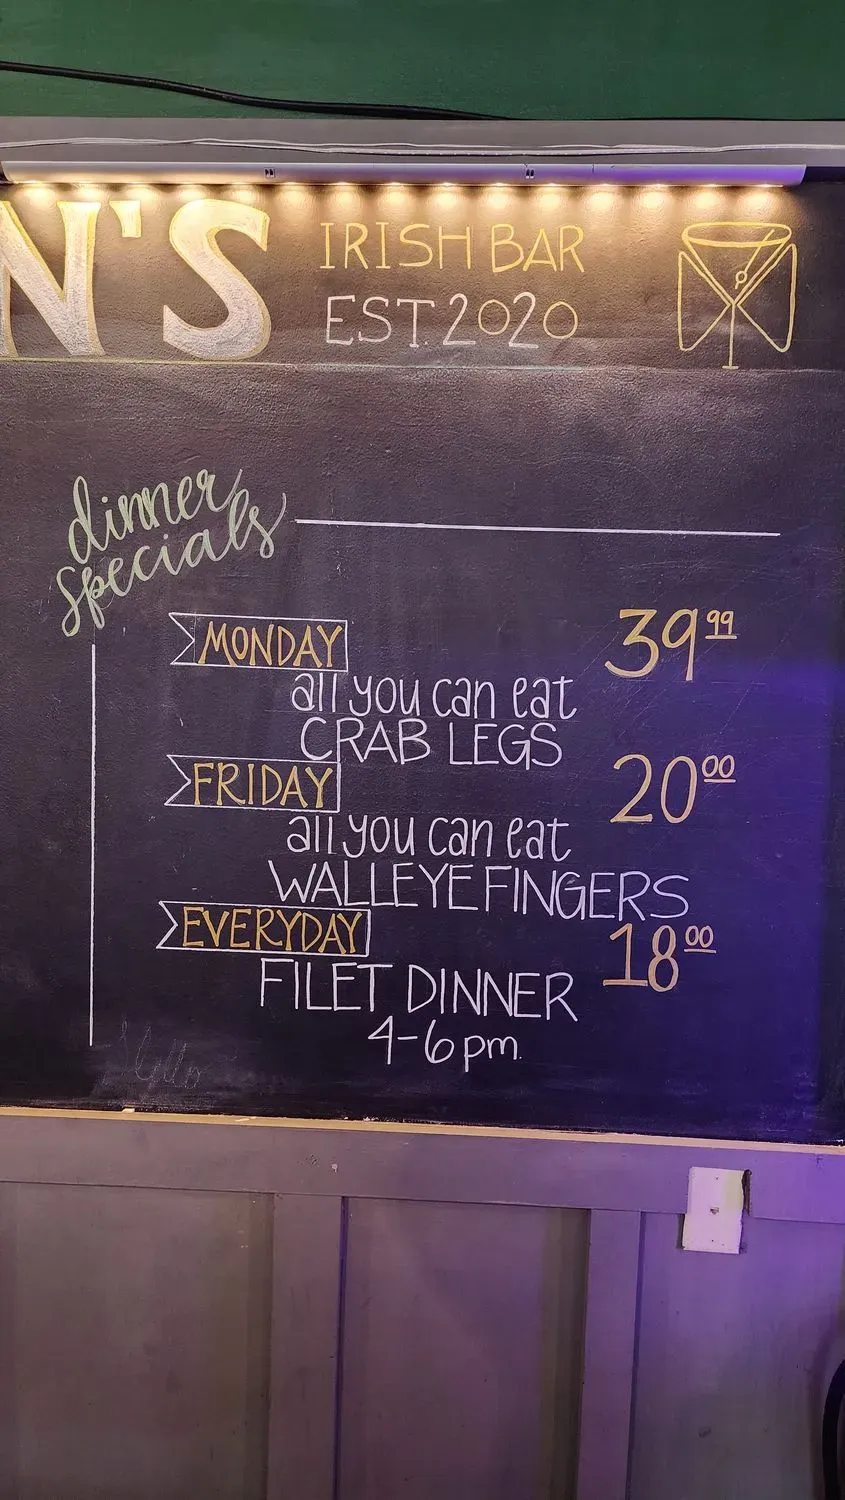 N'S
IRISH BAR
EST. 2020
dinner
specials
MONDAY 39.99
all you can eat
CRAB LEGS
FRIDAY 20.00
all you can eat
WALLEYE FINGERS
EVERYDAY 18.00
FILET DINNER
4-6pm.